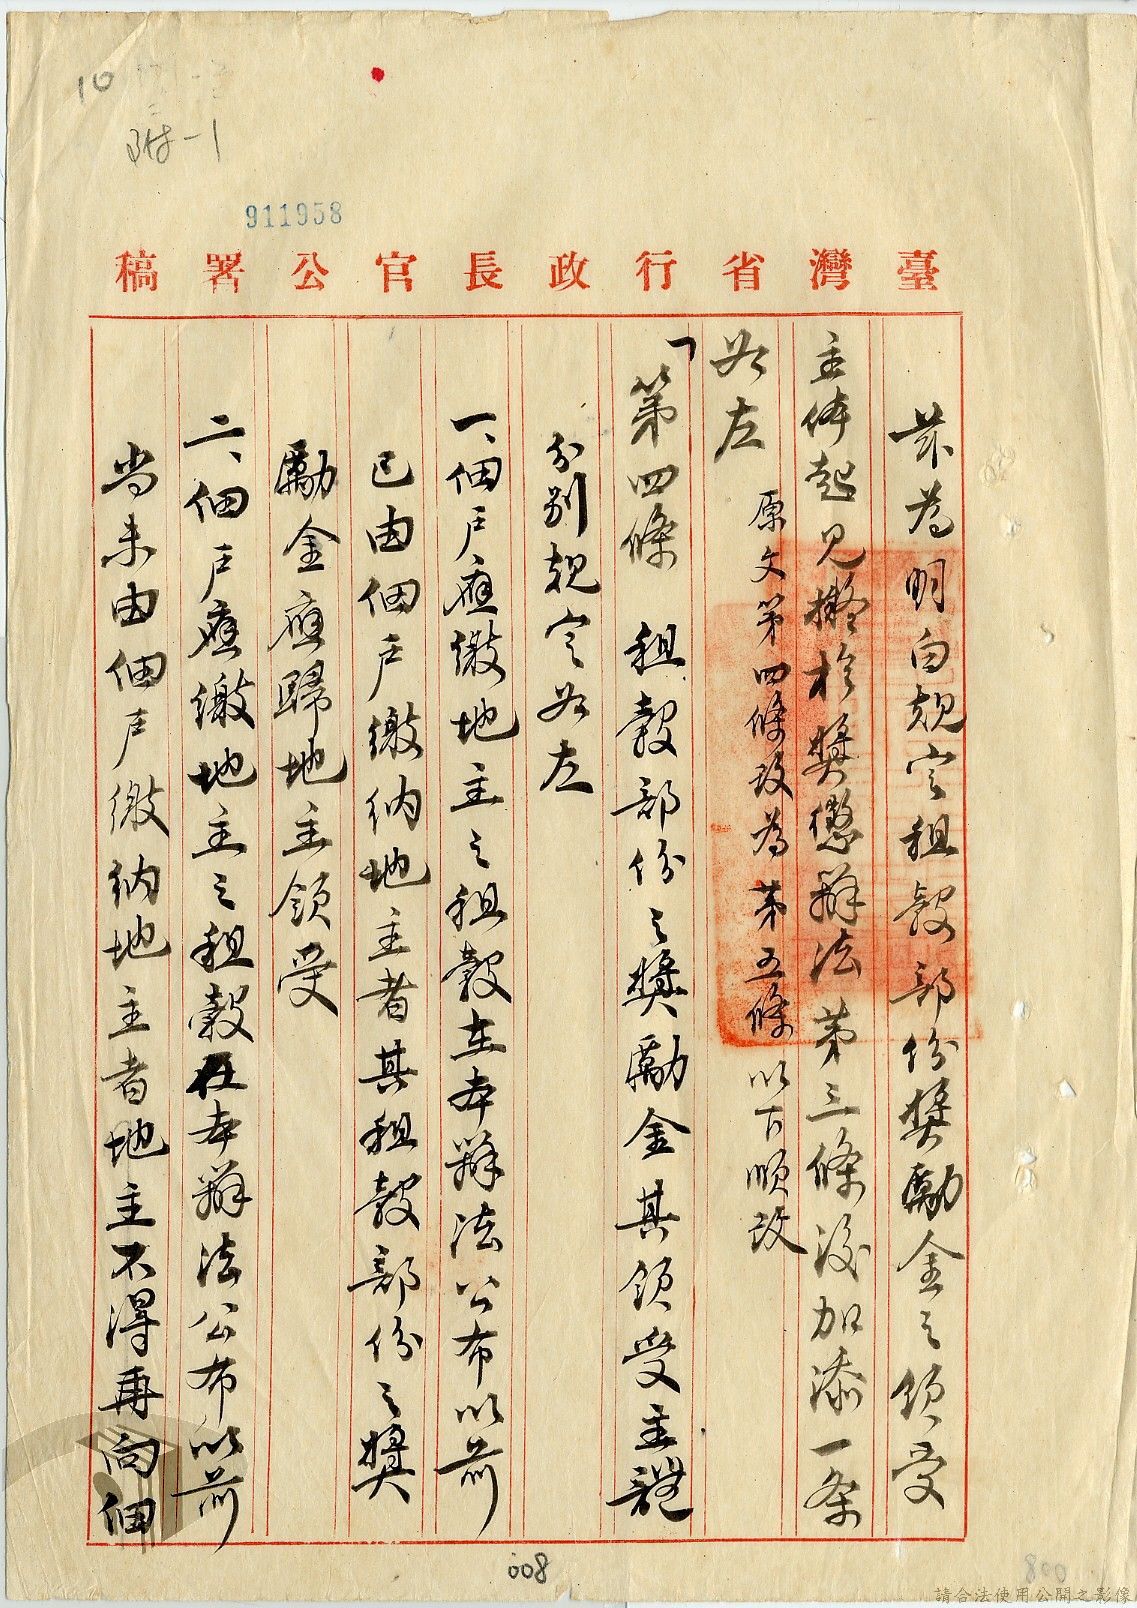 10
附-1
911958
臺灣省行政長官公署稿
茲為明白規定租穀部份獎勵金之領受
主体起見擬於獎懲辦法第三條後加添一条
如左 原文第四條改為第五條以下順改
「第四條 租穀部份之獎勵金其領受主體
分別規定如左
一、佃戶應繳地主之租穀在本辦法公布以前
已由佃戶繳納地主者其租穀部份之獎
勵金應歸地主領受
二、佃戶應繳地主之租穀在本辦法公布以前
尚未由佃戶繳納地主者地主不得再向佃
008
請合法使用公開之影像